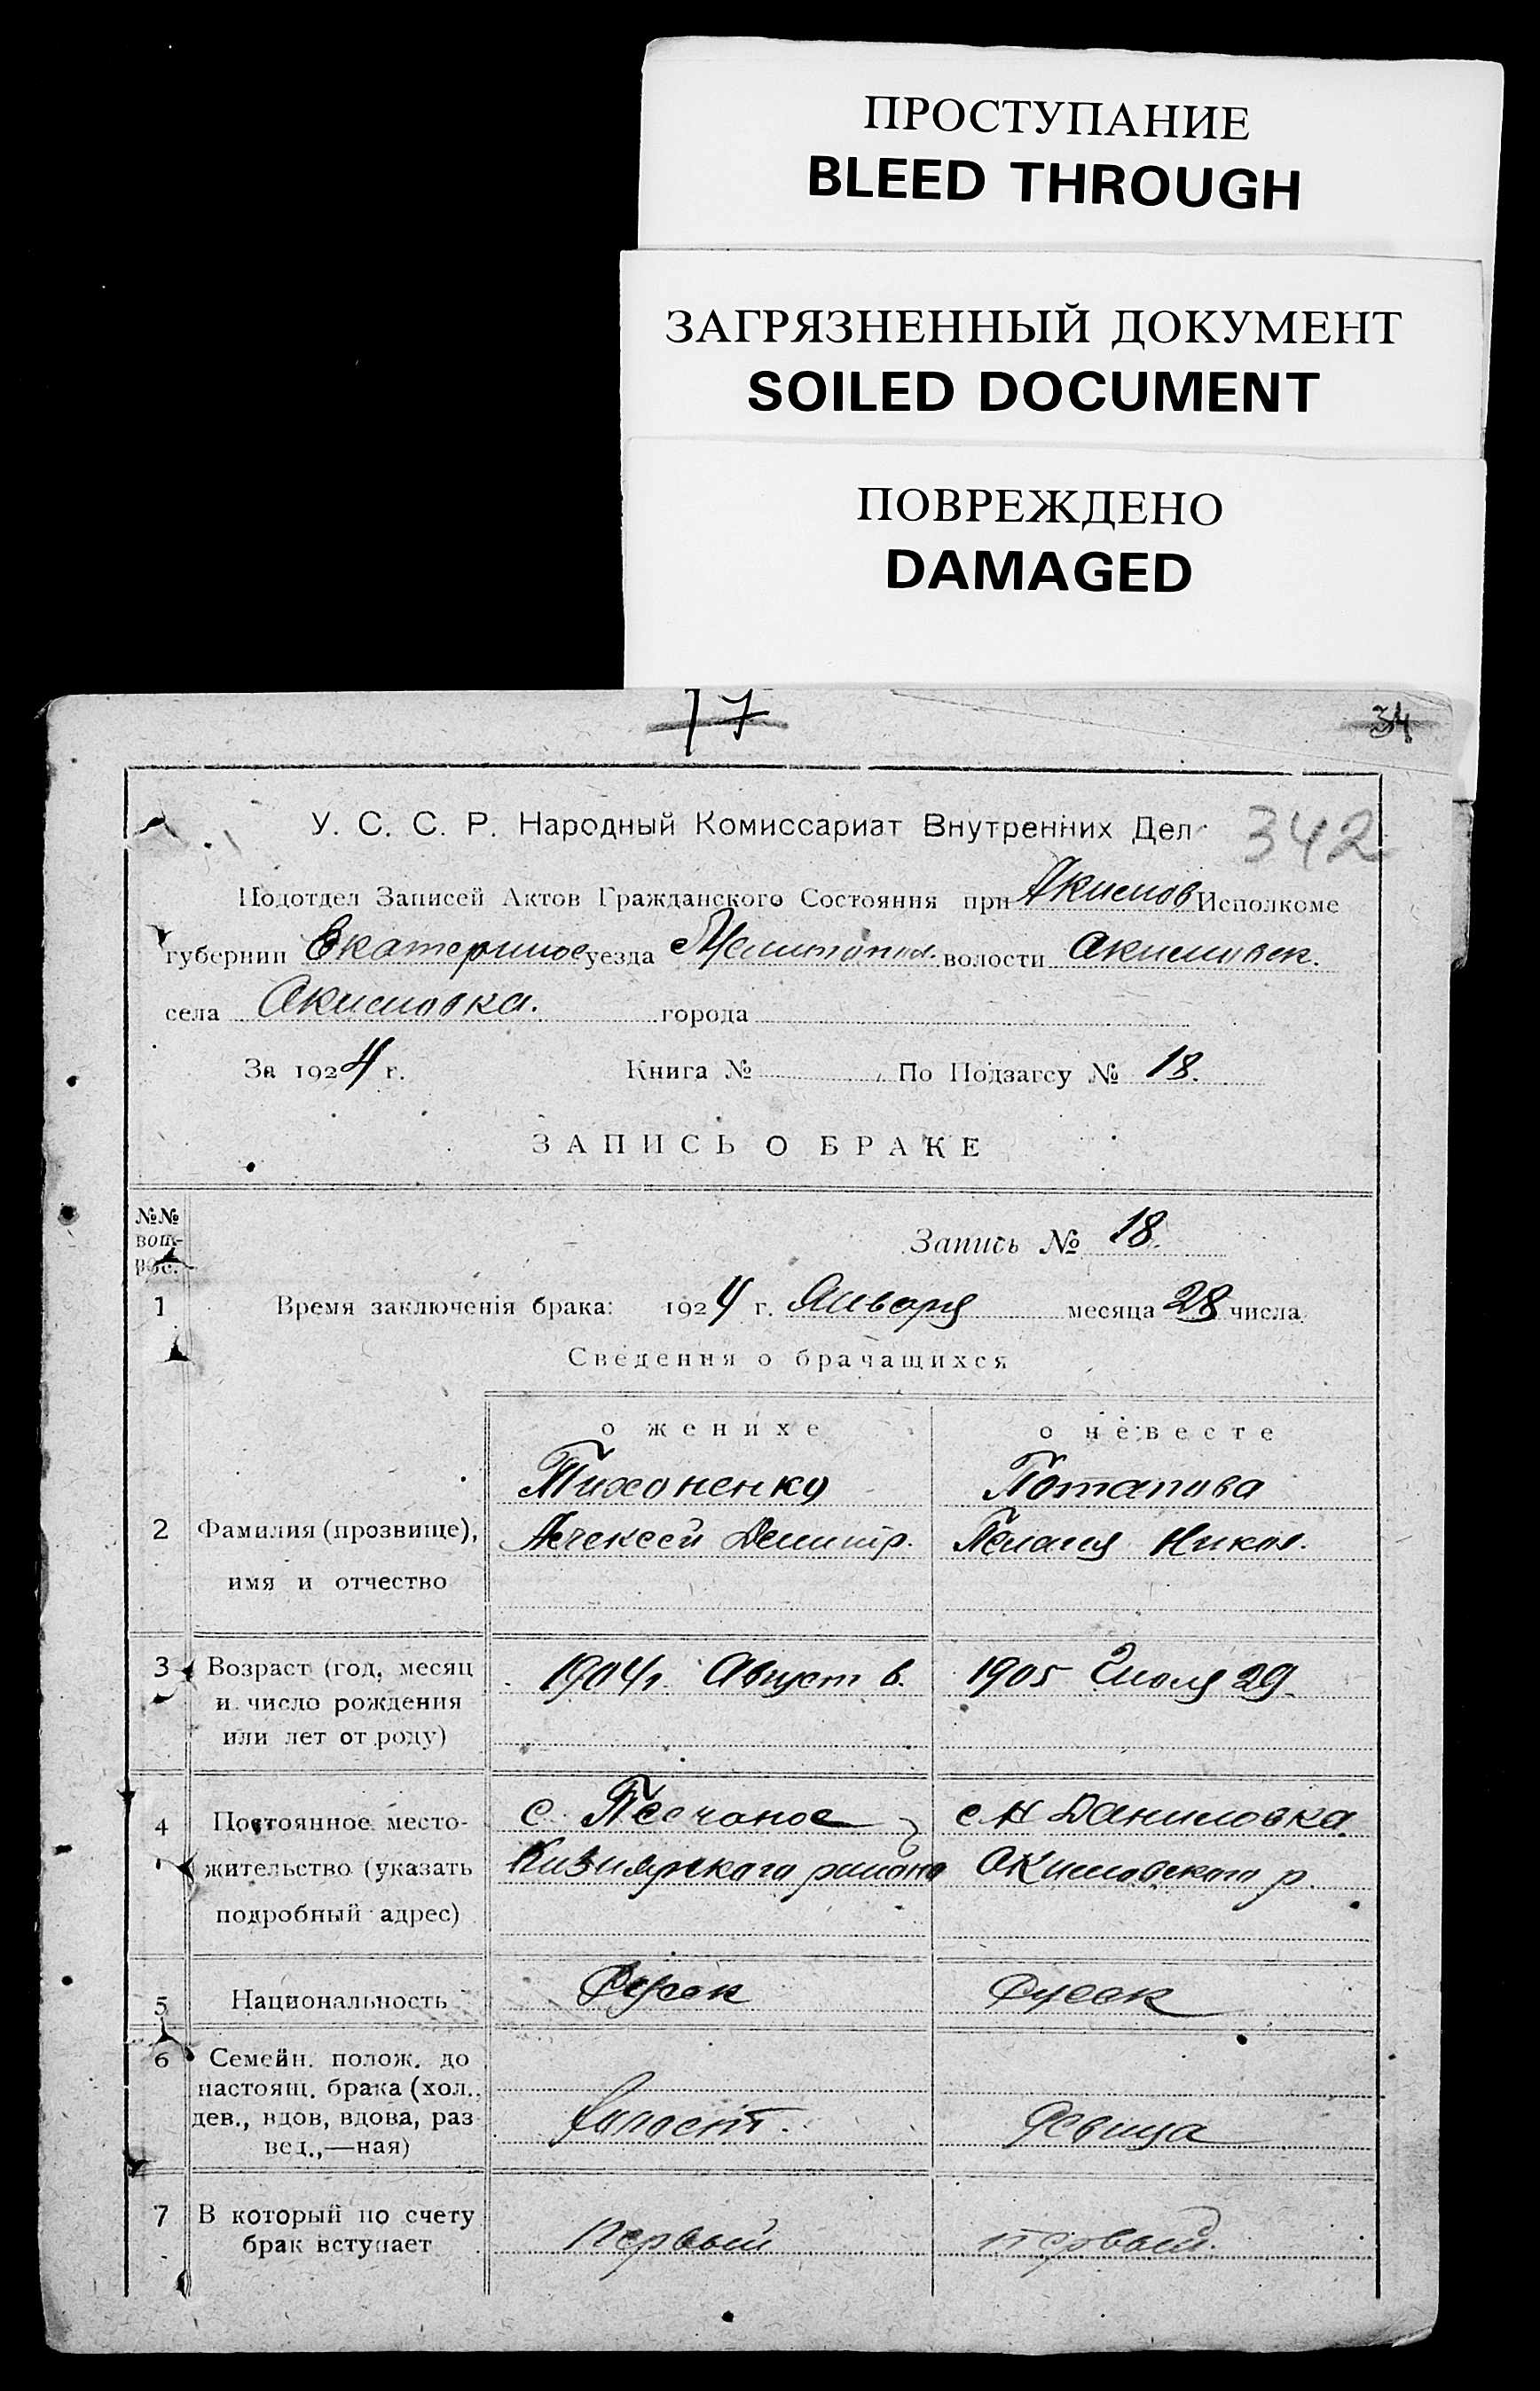 ПРОСТУПАНИЕ
BLEED THROUGH
ЗАГРЯЗНЕННЫЙ ДОКУМЕНТ
SOILED DOCUMENT
ПОВРЕЖДЕНО
DAMAGED
17
34
У. С. С. Р. Народный Комиссариат Внутренних Дел
342
Подотдел Записей Актов Гражданского Состояния при Акимов Исполкоме
губернии Екатеринос уезда Мелитопол. волости Акимовск.
села Акимовка. города
За 1924 г. Книга № По Подзагсу № 18.
ЗАПИСЬ О БРАКЕ
№№ вопрос.
Запись № 18.
1 Время заключенія брака: 1924 г. Января месяца 28 числа
Сведения о брачащихся
о женихе о невесте
Тихоненко Потапова
2 Фамилия (прозвище), Алексей Дмитр. Пелагея Никол.
имя и отчество
3 Возраст (год, месяц 1904 г. Август 6. 1905 Июля 29.
и число рождения
или лет от роду)
4 Постоянное место- с. Песчаное с. Н Даниловка
жительство (указать Кизиярского района Акимовского р.
подробный адрес)
5 Национальность Русск Русск
6 Семейн. полож. до
настоящ. брака (хол.,
дев., вдов, вдова, раз Холост. Девица
вед.,—ная)
7 В который по счету
брак вступает первый первый.